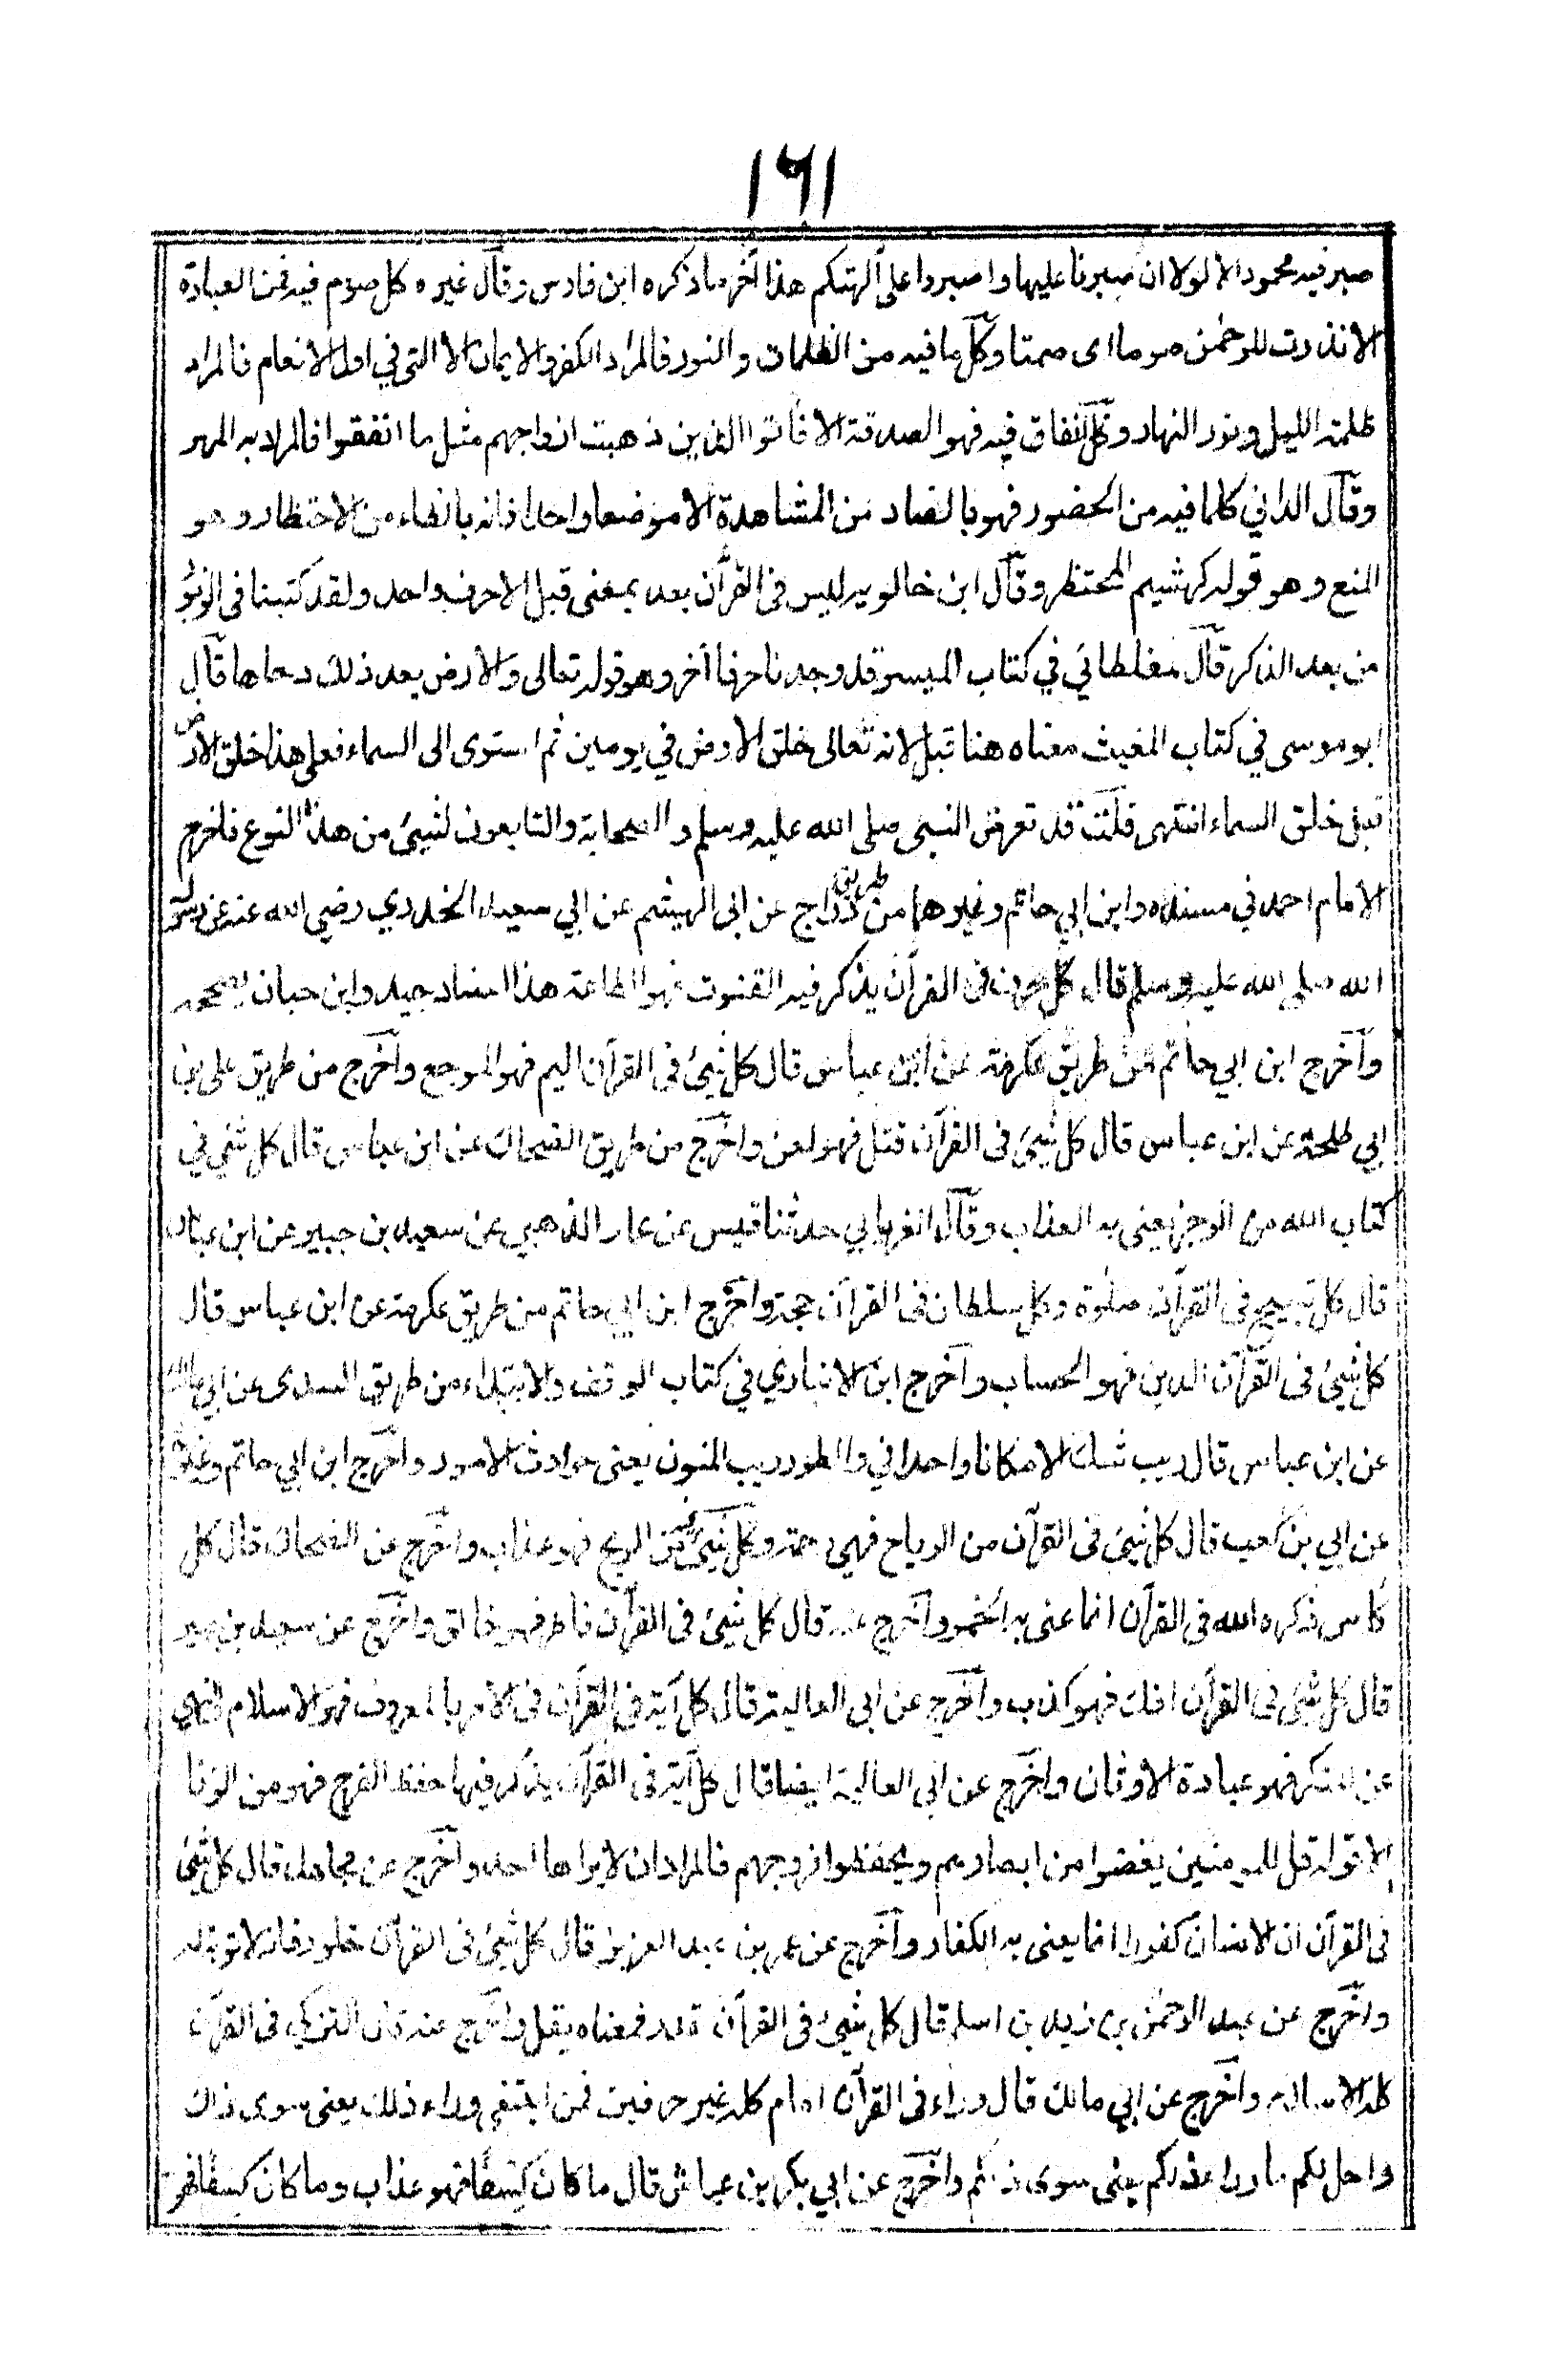 ١٦١
صبر فيه محمود الا لولا ان صبرنا عليها واصبروا على آلهتكم هذا آخر ما ذكره ابن فارس وقال غيره كل صوم فيه فمن العبادة
الا نذرت للرحمٰن صوما اى صمتا وكل ما فيه من الظلمات والنور فالمراد الكفر والايمان الا التي في اول الانعام فالمراد
ظلمة الليل ونور النهار وكل انفاق فيه فهو الصدقة الا فاتوا الذين ذهبت ازواجهم مثل ما انفقوا فالمراد به المهر
وقال الداني كلما فيه من الحضور فهو بالضاد من المشاهدة الا موضعا واحدا فانه بالظاء من الاحتظار وهو
المنع وهو قوله كهشيم المحتظر وقال ابن خالويه ليس فى القرآن بعد بمعنى قبل الا حرف واحد ولقد كتبنا فى الزبور
من بعد الذكر قال مغلطائي في كتاب الميسر قد وجدنا حرفا آخر وهو قوله تعالى والارض بعد ذلك دحاها قال
ابو موسى في كتاب المغيث معناه هنا قبل لانه تعالى خلق الارض في يومين ثم استوى الى السماء فعلى هذا خلق الارض
قبل خلق السماء انتهى قلت قد تعرض النبي صلى الله عليه وسلم والصحابة والتابعون لشيئ من هذا النوع فاخرج
الامام احمد في مسنده وابن ابي حاتم وغيرهما من طريق دراج عن ابى الهيثم عن ابي سعيد الخدري رضي الله عنه عن رسول
الله صلى الله عليه وسلم قال كل حرف فى القرآن يذكر فيه القنوت فهو الطاعة هذا اسناد جيد وابن حبان يصححه
وآخرج ابن ابي حاتم من طريق عكرمة عن ابن عباس قال كل شيئ فى القرآن اليم فهو الموجع وآخرج من طريق على بن
ابي طلحة عن ابن عباس قال كل شيئ فى القرآن قتل فهو لعن وآخرج من طريق الضحاك عن ابن عباس قال كل شيئ في
كتاب الله من الرجز يعنى به العذاب وقال الفريابي حدثنا قيس عن عمار الذهبي عن سعيد بن جبير عن ابن عباس
قال كل تسبيح فى القرآن صلوة وكل سلطان فى القرآن حجة وآخرج ابن ابي حاتم من طريق عكرمة عن ابن عباس قال
كل شيئ فى القرآن الدين فهو الحساب وآخرج ابن الانباري في كتاب الوقف والابتداء من طريق السدى عن ابي مالك
عن ابن عباس قال ريب شك الا مكانا واحدا في والطور ريب المنون يعنى حوادث الامور وآخرج ابن ابي حاتم وغيره
عن ابي بن كعب قال كل شيئ فى القرآن من الرياح فهي رحمة وكل شيئ فيه من الريح فهو عذاب وآخرج عن الضحاك قال كل
كاس ذكره الله فى القرآن انما عنى به الخمر وآخرج عنه قال كل شيئ فى القرآن فاطر فهو خالق وآخرج عن سعيد بن جبير
قال كل شيئ فى القرآن افك فهو كذب وآخرج عن ابى العالية قال كل آية فى القرآن فى الامر بالمعروف فهو الاسلام والنهي
عن المنكر فهو عبادة الاوثان وآخرج عن ابى العالية ايضا قال كل آية فى القرآن يذكر فيها حفظ الفرج فهو من الزنا
الا قوله قل للمومنين يغضوا من ابصارهم ويحفظوا فروجهم فالمراد ان لا يراها احد وآخرج عن مجاهد قال كل شيئ
فى القرآن ان الانسان كفور انما يعنى به الكفار وآخرج عن عمر بن عبد العزيز قال كل شيئ فى القرآن خلود فانه لا توبة له
وآخرج عن عبد الرحمٰن بن زيد بن اسلم قال كل شيئ فى القرآن يقدر فمعناه يقل وآخرج عنه قال التزكي فى القرآن
كله الاسلام وآخرج عن ابي مالك قال وراء فى القرآن امام كله غير حرفين فمن ابتغى وراء ذلك يعنى سوى ذلك
واحل لكم ما وراء ذلكم يعنى سوى ذلكم وآخرج عن ابي بكر بن عياش قال ما كان كِسْفًا فهو عذاب وما كان كِسَفًا فهو